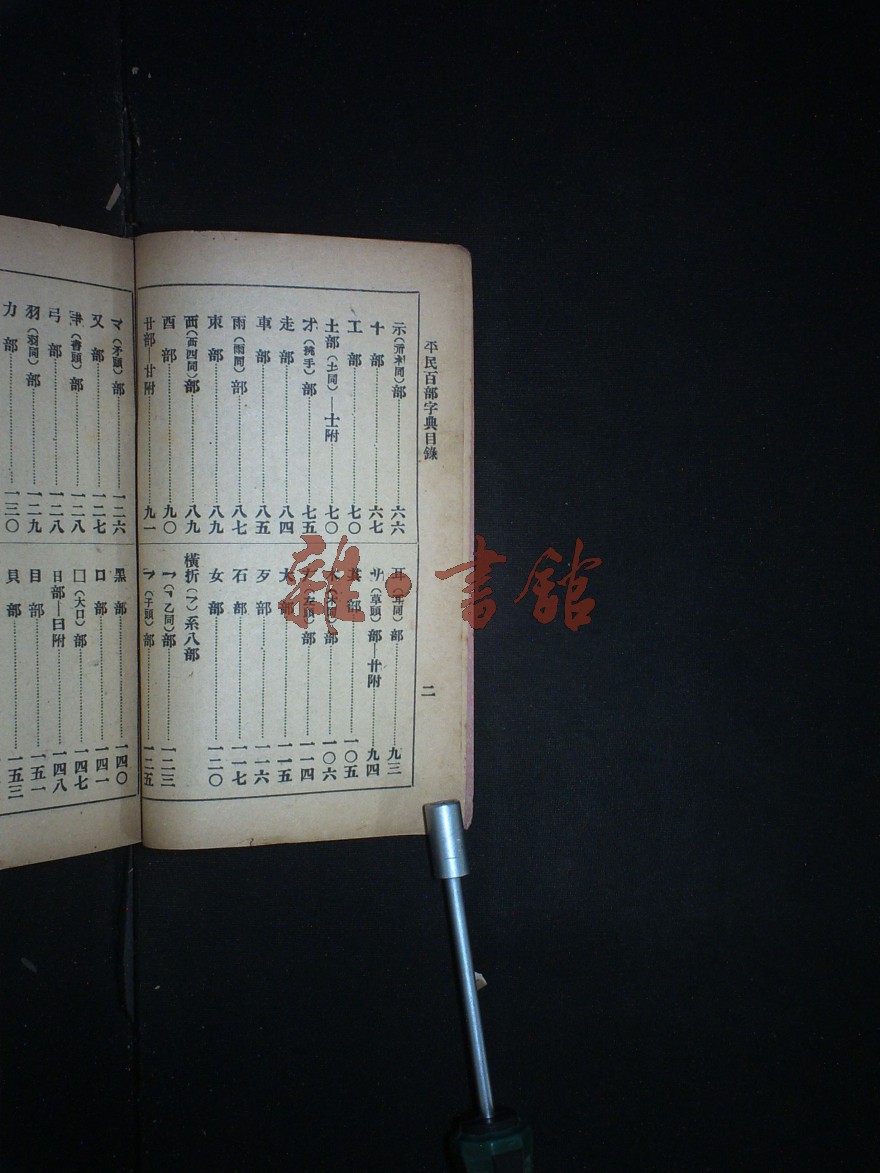 平民百部字典目錄
二
示(示礻同)部 六六
十部 六七
工部 七〇
土部(土同)—士附 七〇
才(挑手)部 七五
走部 八四
車部 八五
東部 八九
雨(雨同)部 八七
西(西四同)部 八九
酉部 九〇
廿部—甘附 九一
耳(耳同)部 九三
艹(草頭)部—廿附 九四
其部 一〇五
木(木同)部 一〇六
𠂇(左頭)部 一一四
大部 一一五
歹部 一一六
石部 一一七
女部 一二〇
橫折(乛)系八部
乛(乙同)部 一二三
乛(子頭)部 一二五
龴(矛頭)部 一二六
又部 一二七
(書頭)部 一二八
弓部 一二八
羽(羽同)部 一二九
力部 一三〇
黑部 一四〇
口部 一四一
囗(大口)部 一四七
日部—曰附 一四八
目部 一五一
貝部 一五三
雜·書館